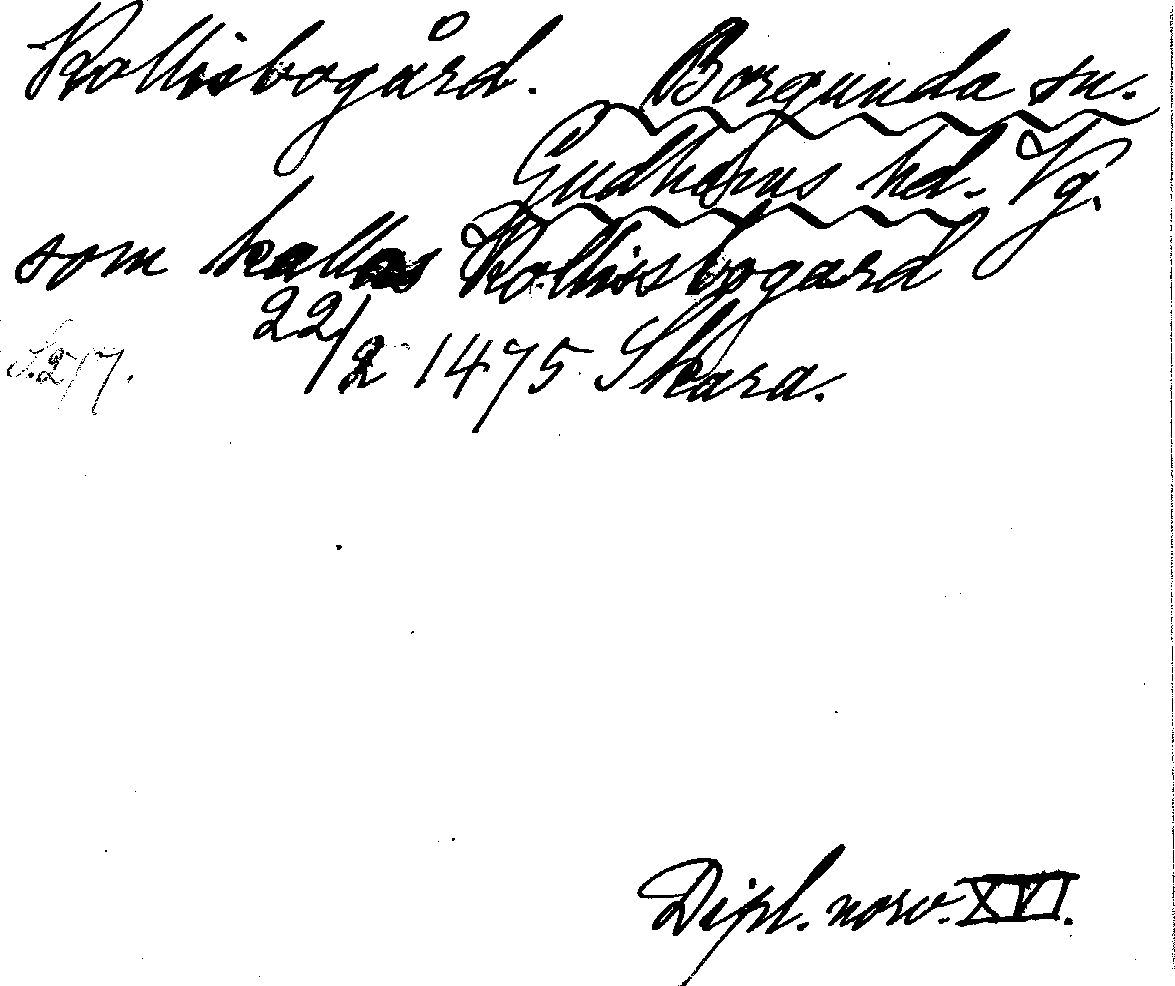 Kollisbogård. Borgunda sn.
Gudhems hd. Vg.
som kallas Kollissbogard
S. 277. 22/2 1475 Skara.
Dipl. norv. XVI.